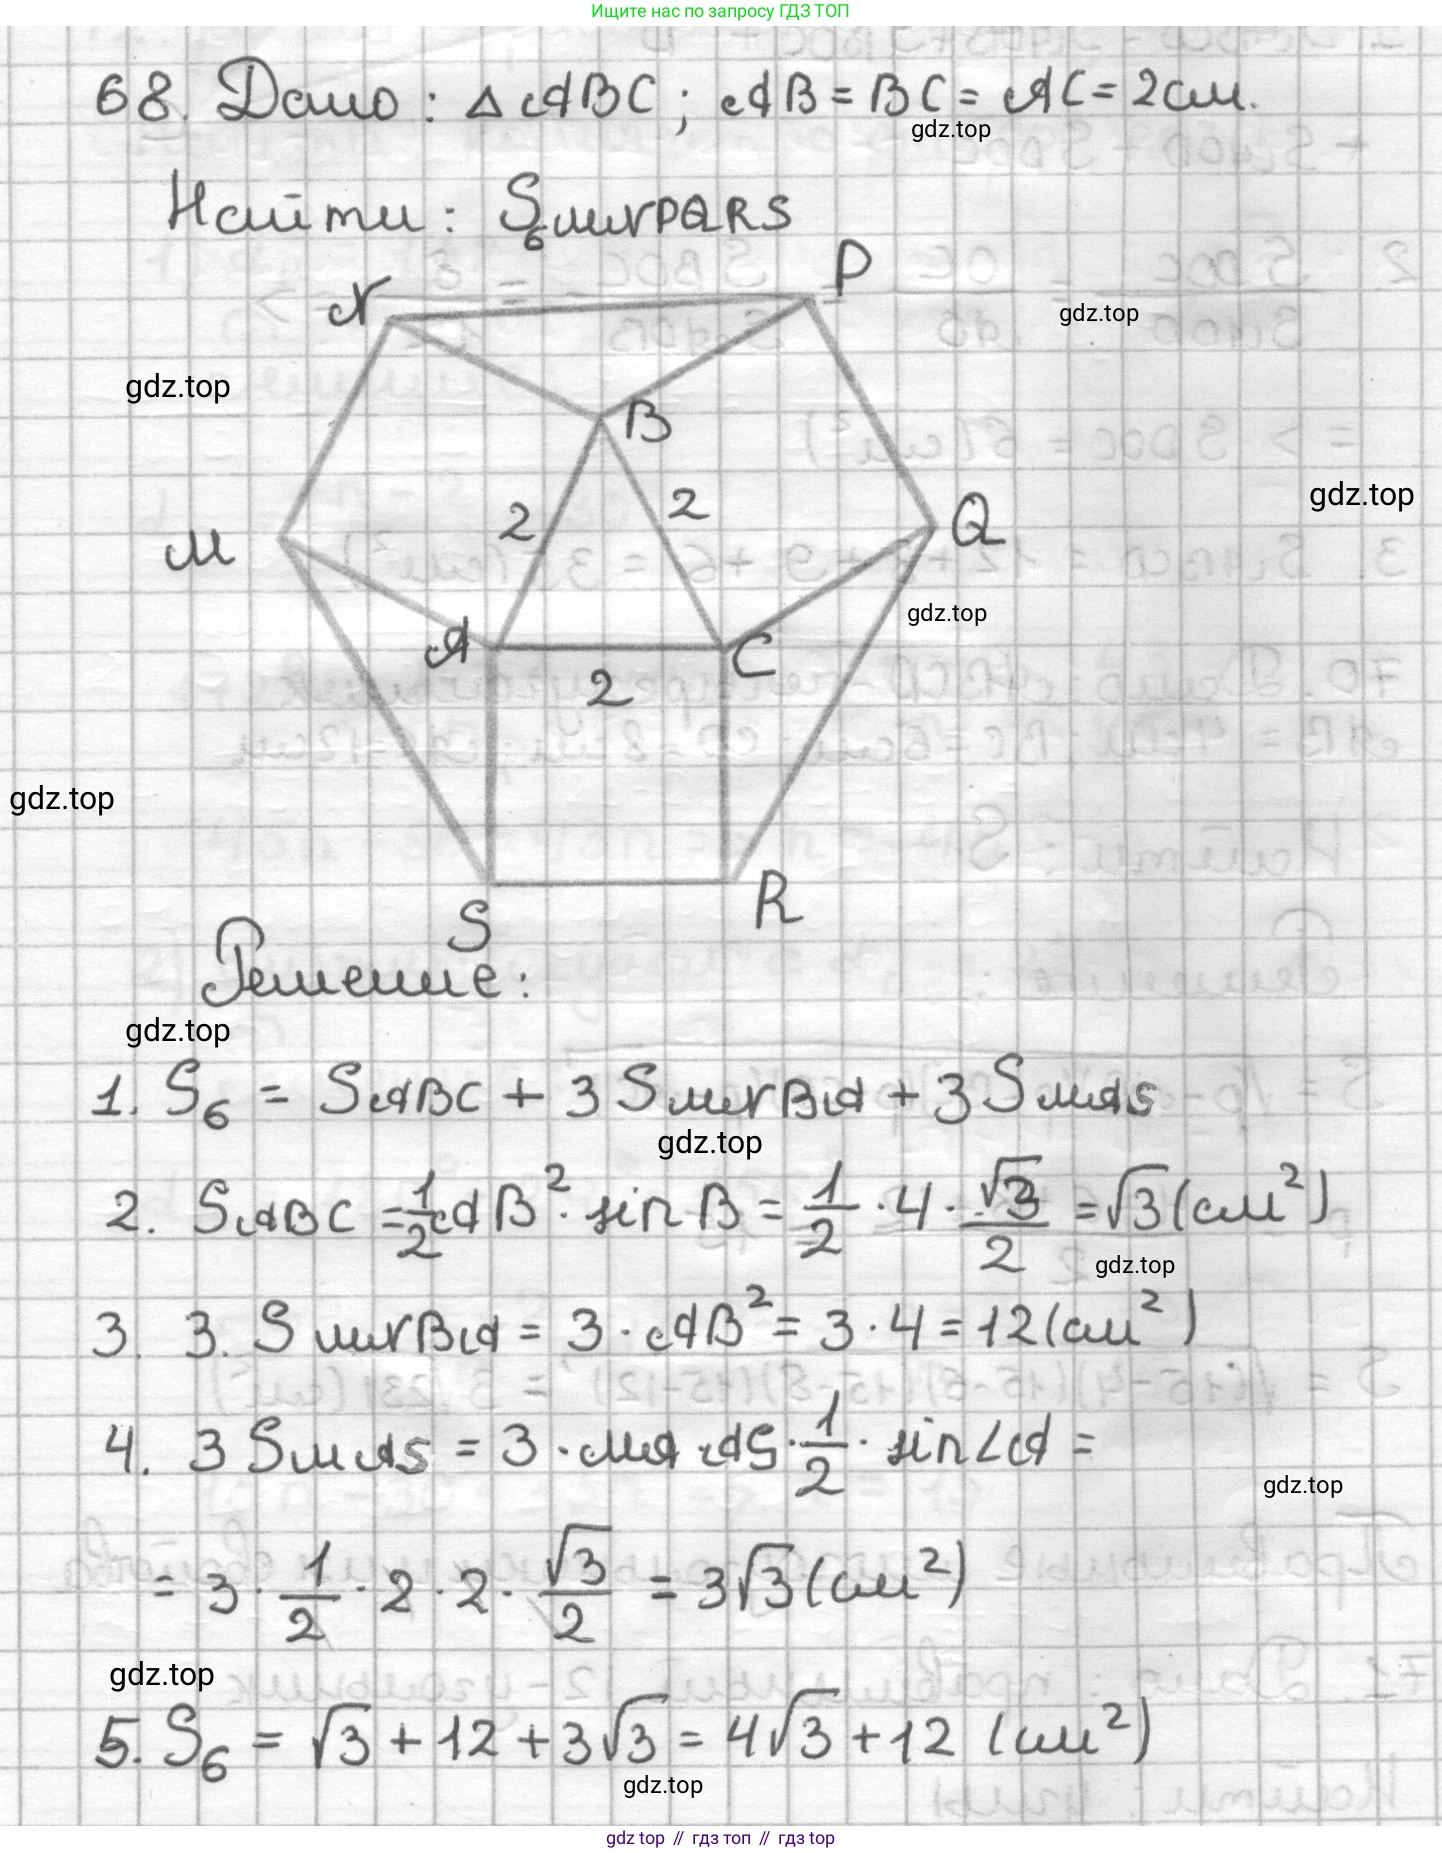 Ищите нас по запросу ГДЗ ТОП
68. Дано: △ABC; AB = BC = AC = 2 см.
gdz.top
Найти: S₆MNPQRS
N
P
gdz.top
gdz.top
B
2
2
Q
gdz.top
M
gdz.top
A
C
2
gdz.top
S
R
Решение:
gdz.top
1. S₆ = SABC + 3 SMNBA + 3 SMAS
gdz.top
2. SABC = 1/2 AB² · sin B = 1/2 · 4 · √3/2 = √3 (см²)
gdz.top
3. 3. SMNBA = 3 · AB² = 3 · 4 = 12 (см²)
4. 3 SMAS = 3 · MA · AS · 1/2 · sin∠A =
gdz.top
= 3 · 1/2 · 2 · 2 · √3/2 = 3√3 (см²)
gdz.top
5. S₆ = √3 + 12 + 3√3 = 4√3 + 12 (см²)
gdz.top
gdz top // гдз топ // gdz top